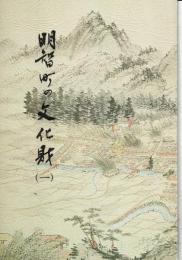 明智町の文化財(一)